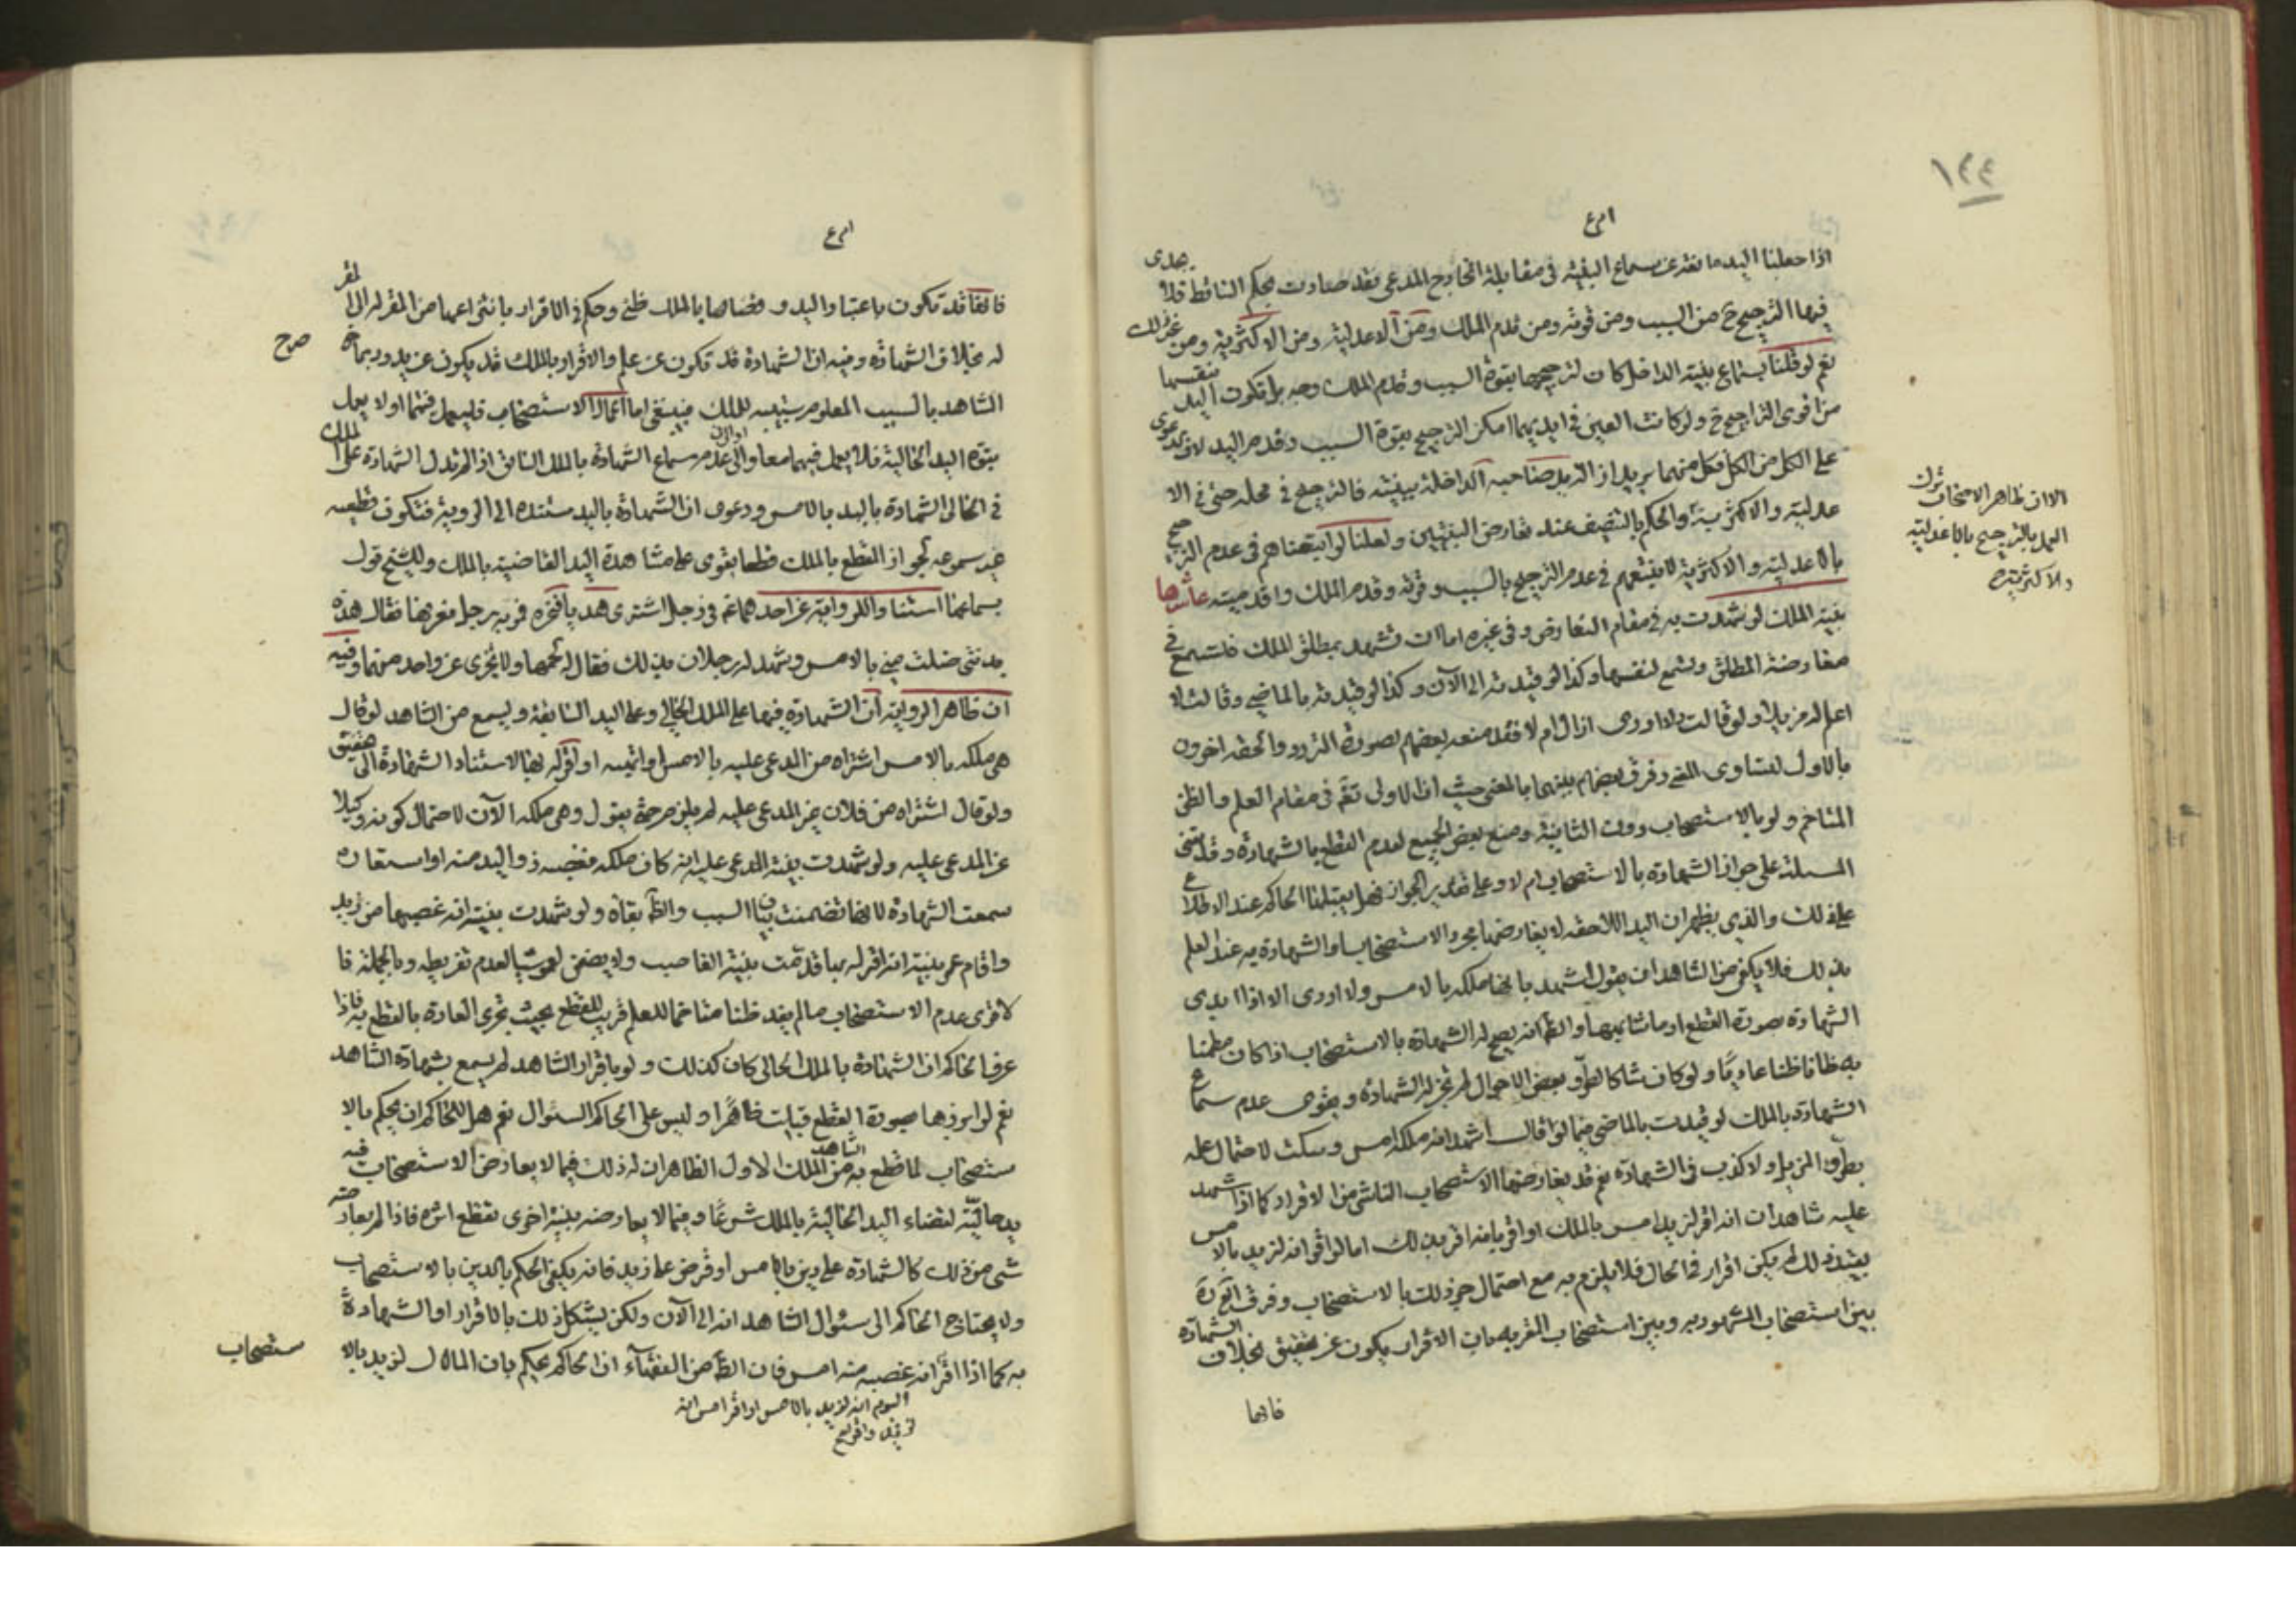 ١٤٤
اذا جعلنا اليد مانعة عن سماع البينة في مقابلة الخارج المدعى فقد صارت بحكم الساقط فلا يجدى
فيها الترجيح ح من السبب ومن قوته ومن قدم الملك ومن الاعدلية ومن الاكثرية ومن غير ذلك
نعم لو قلنا بسماع بينة الداخل كان لترجيحها بقوة السبب وقدم الملك وجه بل تكون اليد بنفسها
من اقوى التراجيح ح ولو كانت العين في ايديهما امكن الترجيح بقوة السبب وقدم اليد لانه دعوى
على الكل من الكل فكل منهما يريد ازالة يد صاحبه الداخلة ببينته فالترجيح في محله حتى في الا
عدلية والاكثرية والحكم بالتنصيف عند تعارض البينتين ولعلنا لو اتبعناهم في عدم الترجيح
الا ان ظاهر الاصحاب ترك
العمل بالترجيح بالاعدلية
والاكثرية
بالاعدلية والاكثرية لا نتبعهم في عدم الترجيح بالسبب وقوته وقدم الملك واقدميته عاشرها
بينة الملك لو شهدت به في مقام التعارض وفي غيره اما ان تشهد بمطلق الملك فتسمع في
معارضة المطلق وتسمع لنفسها وكذا لو قيدته الى الآن وكذا لو قيدته بالماضي وقالت لا
اعلم له مزيلا ولو قالت لا ادرى ازال ام لا فقد منعه بعضهم لصورة التردد والحقه اخرون
بالاول لتساوى المعنى وفرق بعضهم بينهما بالمعنى حيث ان الاولى تقع في مقام العلم والظن
المتاخم ولو بالاستصحاب دون الثانية ومنع بعض الجميع لعدم القطع بالشهادة وقد تبتنى
المسئلة على جواز الشهادة بالاستصحاب ام لا وعلى تقدير الجواز فهل يقبلها الحاكم عند الاطلاع
على ذلك والذي يظهر ان اليد اللاحقة لا يعارضها مجرد الاستصحاب او الشهادة به عند العلم
بذلك فلا يكفي من الشاهد ان يقول اشهد بانها ملكه بالامس ولا ادرى الا اذا ابدى
الشهادة بصورة القطع او ما شابهها والظ انه يصح له الشهادة بالاستصحاب اذا كان مطمئنا
به ظانا ظنا عاديا ولو كان شاكا لطرو بعض الاحوال لم تجز له الشهادة ويقوى عدم سماع
الشهادة بالملك لو قيدت بالماضي فيما لو اقال اشهد انه ملكه امس وسكت لاحتمال علمه
بطرو المزيل ولا كذب في الشهادة نعم قد يعارضها الاستصحاب الناشى من الاقرار كما اذا شهد
عليه شاهدان انه اقر لزيد امس بالملك او اقر بانه اقر بذلك اما لو اقر انه لزيد بالامس
بين استصحاب المشهود به وبين استصحاب المقر به بان الاقرار يكون عن تحقيق بخلاف الشهادة
فانها
فانها قد تكون باعتبار اليد و قضائها بالملك ظني وحكم في الاقرار بانتزاعها من المقر له الى المقر
له بخلاف الشهادة وفيه ان الشهادة قد تكون عن علم والاقرار بالملك قد يكون عن يد وربما
صرح
الشاهد بالسبب المعلوم سببيته للملك فينبغي اما اعمال الاستصحاب فليعمل فيهما اولا يعمل
بقوة اليد الحالية فلا يعمل فيهما معا والى عدم سماع الشهادة بالملك السابق اذا لم تدل الشهادة على الملك
في الحال الشهادة باليد بالامس ودعوى ان الشهادة باليد مستندة الى الروية فتكون قطعية
غير سموعه لجواز القطع بالملك قطعا يقوى على مشاهدة اليد القاضية بالملك وللشيخ قول
بسماعها استنادا للرواية عن احدهما ع في رجل اشترى هديا فنحره فمر به رجل فعرفها فقال هذه
بدنتى ضلت مني بالامس وشهد له رجلان بذلك فقال له لحمها ولا يجزى عن واحد منهما وفيه
ان ظاهر الرواية ان الشهادة فيها على الملك الحالي وعلى اليد السابقة ويسمع من الشاهد لو قال
هي ملكه بالامس اشتراه من المدعى عليه بالامس او اقر له بها لاستناد الشهادة الى تحقيق
ولو قال اشتراه من فلان غير المدعى عليه لم يلزم حتى يقول وهى ملكه الآن لاحتمال كونه وكيلا
عن المدعى عليه ولو شهدت بينة المدعى عليه انه كان ملكه فغصبه ذو اليد منه او استعاره
سمعت الشهادة لانها تضمنت بيان السبب والظ بقاؤه ولو شهدت بينة انه غصبها من زيد
واقام عمر بينة انه اقر له بها قدمت بينة الغاصب ولا يضمن لعدم تفريطه وبالجملة فا
لاقوى عدم الاستصحاب ما لم يفد ظنا متاخما للعلم قريب للقطع بحيث تجرى العادة بالقطع به فاذا
عرف الحاكم ان الشهادة بالملك الحالي كان كذلك ولو باقرار الشاهد لم يسمع بشهادة الشاهد
نعم لو ابرزها بصورة القطع قبلت ظاهرا وليس على الحاكم السئوال نعم هل للحاكم ان يحكم بالا
ستصحاب لما قطع به الشاهد من الملك الاول الظاهر ان له ذلك فيما لا يعارض الاستصحاب فيه
يد حالية لقضاء اليد الحالية بالملك شرعا وفيما لا يعارضه بينة اخرى تقطع اثره فاذا لم يعارضه
شى من ذلك كالشهادة على دين بالامس او قرض على زيد فانه يكفي الحكم بالدين بالاستصحاب
ولا يحتاج الحاكم الى سئوال الشاهد انه الى الآن ولكن يشكل ذلك بالاقرار او الشهادة
به كما اذا اقر انه غصبه منه امس فان الظ من الفقهآء ان الحاكم يحكم بان المال لزيد بالا
ستصحاب
اليوم انه لزيد بالامس او اقر امس انه